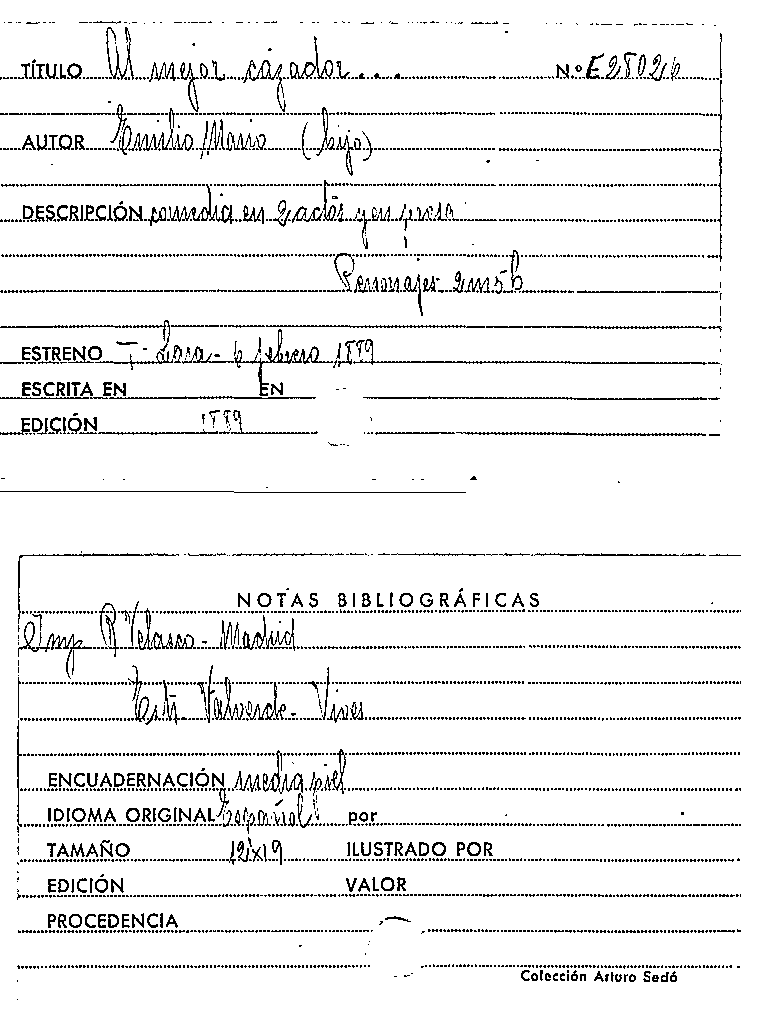 TÍTULO Al mejor cazador... N.º E 28026
AUTOR Emilio Mario (hijo)
DESCRIPCIÓN comedia en 2 actos y en prosa
Personajes 2m 5h
ESTRENO T. Lara - 6 febrero 1889
ESCRITA EN EN
EDICIÓN 1889
NOTAS BIBLIOGRÁFICAS
Imp R Velasco - Madrid
Valverde - Vives
ENCUADERNACIÓN media piel
IDIOMA ORIGINAL Español por
TAMAÑO 12x19 ILUSTRADO POR
EDICIÓN VALOR
PROCEDENCIA
Colección Arturo Sedó